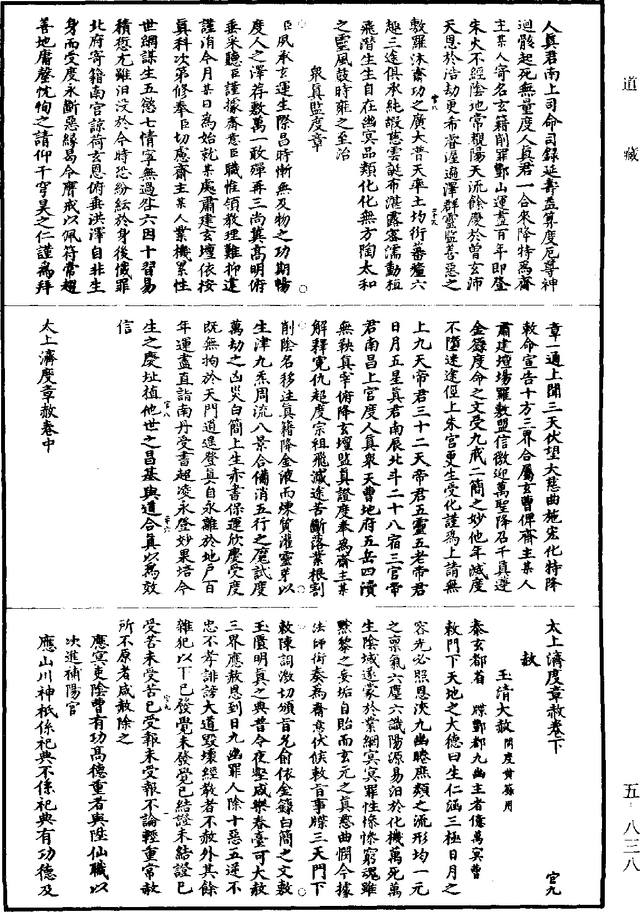 道藏
人真君南上司命司錄延壽益算度厄尊神
迴骸起死無量度人真君一合來降特為齋
主某人寄名玄籍削罪酆山運盡百年即登
朱火不經陰地常覩陽天流餘慶於曾玄沛
天恩於浩劫更希睿澤遍澤群靈監善惡之
敷羅沐齋功之廣大普天率土均衍蕃釐六
趣三途俱承純嘏慈雲誕布湛露審濡動植
飛潛生生自在幽冥品類化化無方陶太和
之靈風鼓時雍之至治
衆真監度章
臣夙承玄運生際昌時慚無及物之功期暢
度人之澤荐數萬一敢殫再三尚冀高明俯
垂采聽臣謹據齋意臣職惟領教理難抑違
謹涓今月某日為始就某處肅建玄壇依按
真科次第修奉臣切應齋主某人業機累性
世網謀生五慾七情寧無過咎六因十習易
積愆尤雖汨沒於今時恐紛紜於身後懺罪
北府寄籍南宫諒荷玄恩俯垂洪澤自非生
身而受度永斷惡緣曷今齋戒以佩符常趨
善地庸罄忱恂之請仰干穹昊之仁謹為拜
章一通上聞三天伏望大慈曲施宏化特降
敕命宣告十方三界合屬玄曹俾齋主某人
肅建壇場羅敷盟信徼迎萬聖降召千真遵
金籙度命之文受九戒二簡之妙他年滅度
不墮迷途徑上朱宫更生受化謹為上請無
上九天帝君三十二天帝君五靈五老帝君
日月五星真君南辰北斗二十八宿三官帝
君南昌上宫度人真衆天曹地府五岳四瀆
無鞅真宰俯降玄壇監真證度奉為齋主某
解釋寃仇超度宗祖飛滅途苦斷落葉根割
削除名移注真籍降金液而煉質灌靈芽以
生津九炁周流八景合備消五行之魔試度
萬劫之凶災白簡上生赤書保運欣慶受度
既無拘於天門逍遥登真自永離於地戶百
年運盡直詣南丹受書超凌永登妙果培今
生之慶址植他世之昌基與道合真以為效
信
太上濟度章赦卷中
太上濟度章赦卷下
宫九
赦
玉清大赦開度黄籙用
泰玄都省 牒酆都九幽主者億萬冥曹
敕門下天地之大德曰生仁涵三極日月之
容光必照恩浹九幽睠庶類之流形均一元
之稟氣六塵六識陽源易汨於化機萬死萬
生陰域遂蒙於業網冥冥罪性慘慘窮魂雖
黔黎之妄垢自貽而玄元之真慈曲憫今據
法師銜奏為齋意伏候敕旨事牒三天門下
敕陳詞激切頒旨允俞依金籙白簡之文敷
玉匱明真之典昔今夜壑咸樂春臺可大赦
三界應赦恩到日九幽罪人除十惡五逆不
忠不孝誹謗大道毀壞經教者不赦外其餘
雜犯以下已發覺未發覺已結證未結證已
受苦未受苦已受報未受報不論輕重常赦
所不原者咸赦除之
應冥吏陰曹有功高德重者與陞仙職以
次進補陽官
應山川神祇係祀典不係祀典有功德及
五·八三八